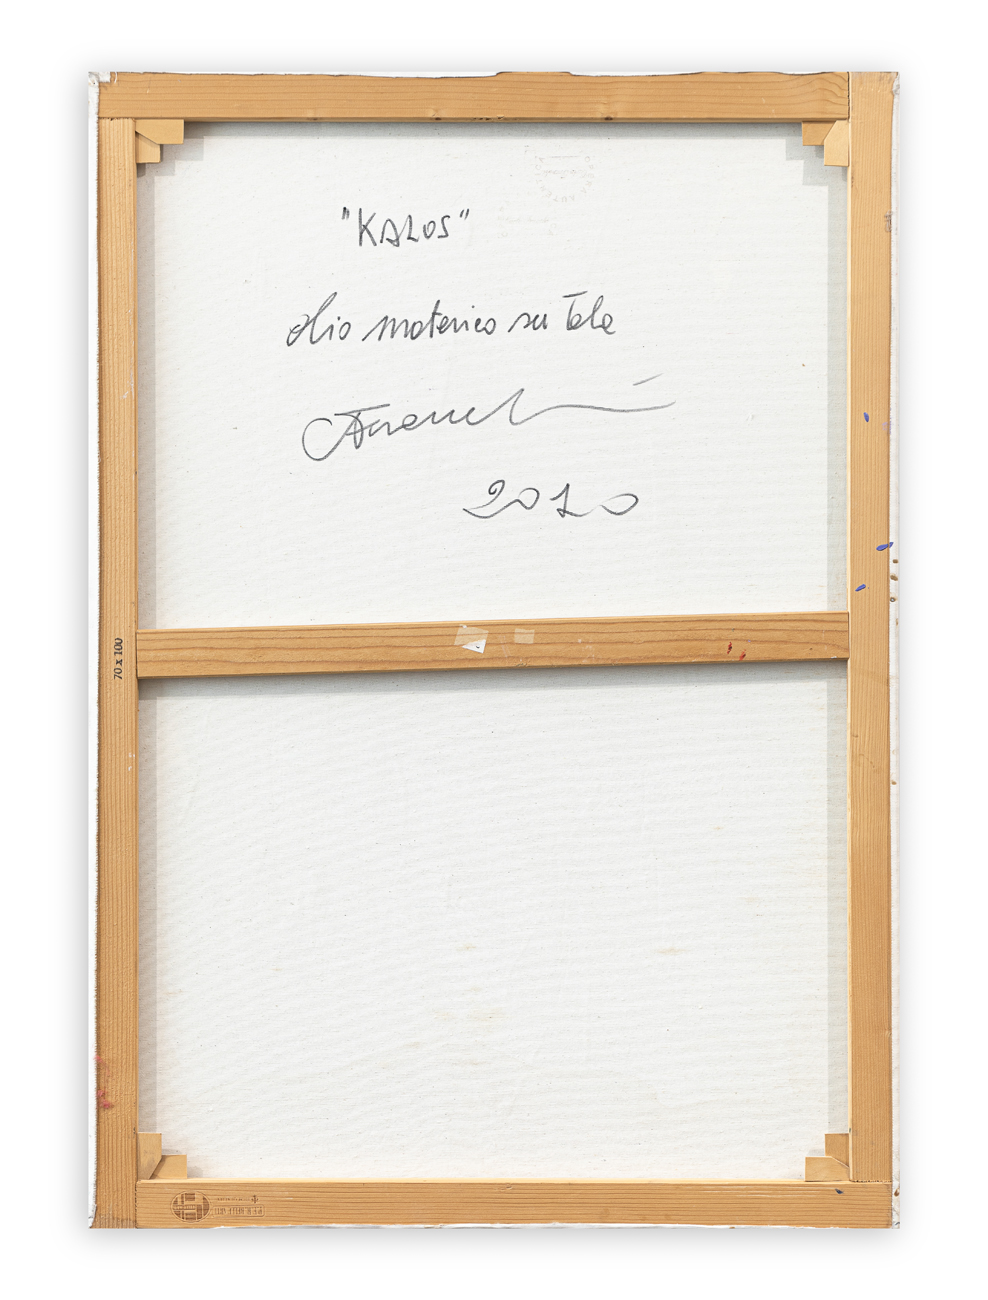 "KALOS"
olio materico su tela
2010
70 x 100